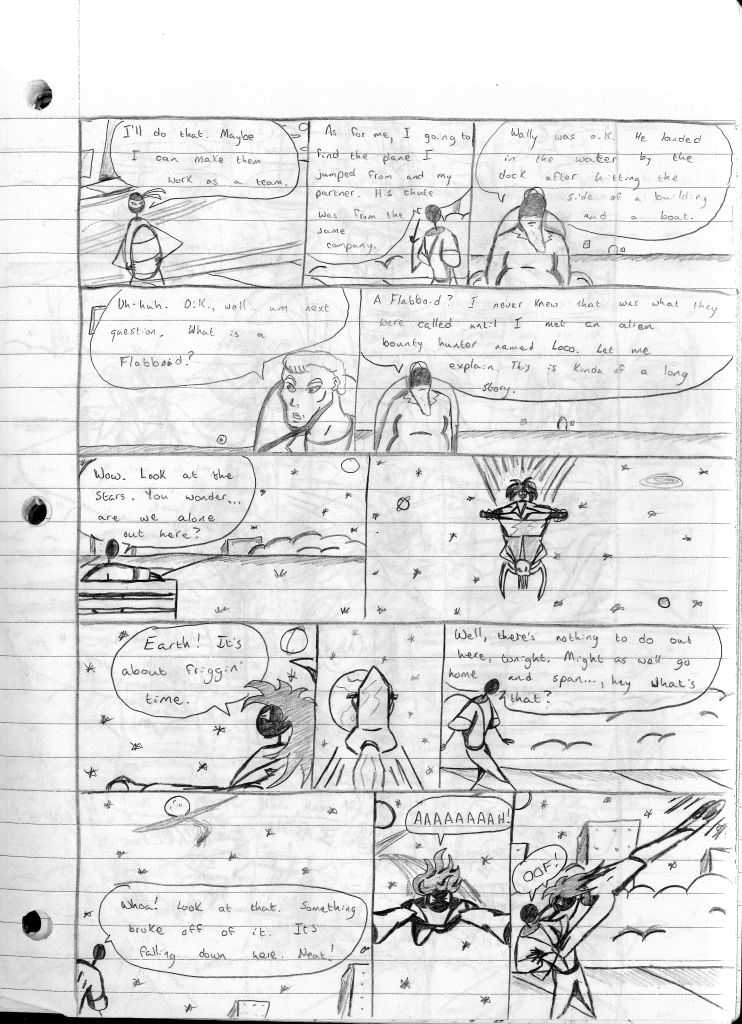 I'll do that. Maybe
I can make them
work as a team.
As for me, I going to
find the plane I
jumped from and my
partner. His chute
was from the
same
company.
Wally was o.k. He landed
in the water by the
dock after hitting the
side of a building
and a boat.
Uh-huh. O.K., well.. um. next
question. What is a
Flabboid?
A Flabboid? I never knew that was what they
were called until I met an alien
bounty hunter named Loco. Let me
explain. This is kinda of a long
story.
Wow. Look at the
stars. You wonder...
are we alone
out here?
Earth! It's
about friggin'
time.
Well, there's nothing to do out
here, tonight. Might as well go
home and span..., hey what's
that?
Whoa! Look at that. Something
broke off of it. It's
falling down here. Neat!
AAAAAAAAH!
OOF!